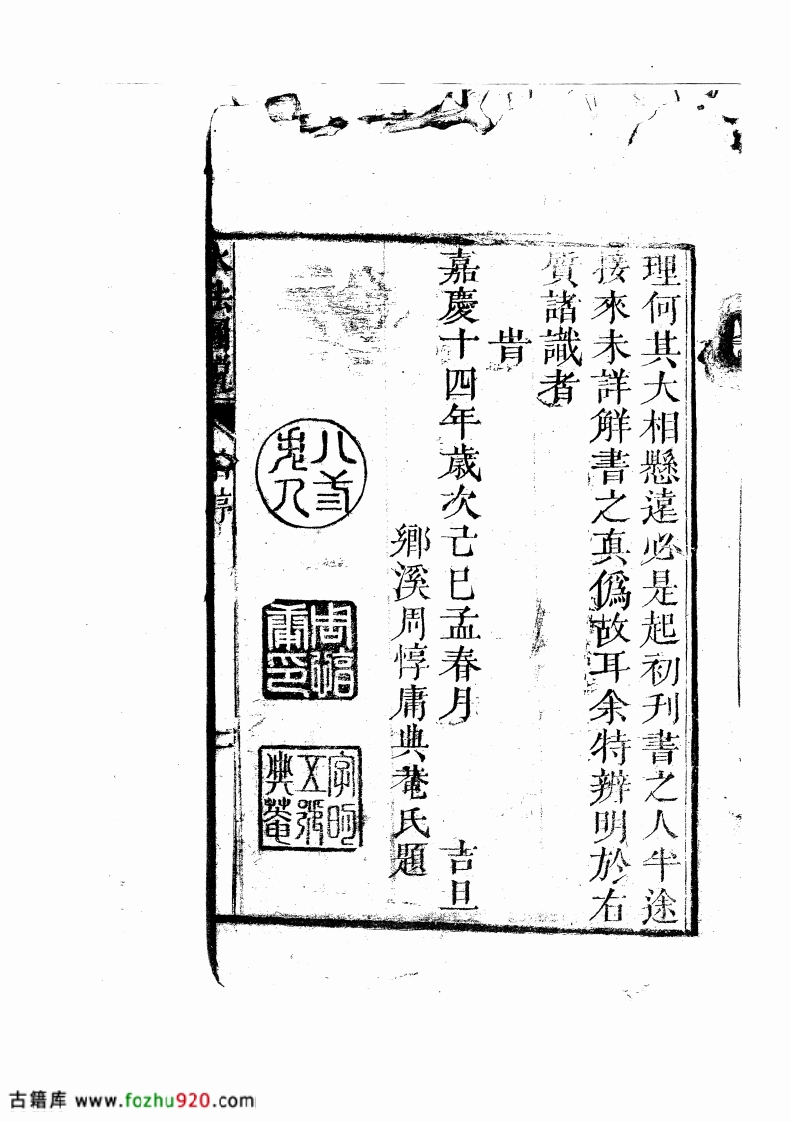 理何其大相懸遠必是起初刊書之人半途
接來未詳解書之真僞故耳余特辨明於右
質諸識者
旹
嘉慶十四年歲次己巳孟春月 吉旦
鄉溪周惇庸典菴氏題
水法圖說
自序
古籍库 www.fozhu920.com